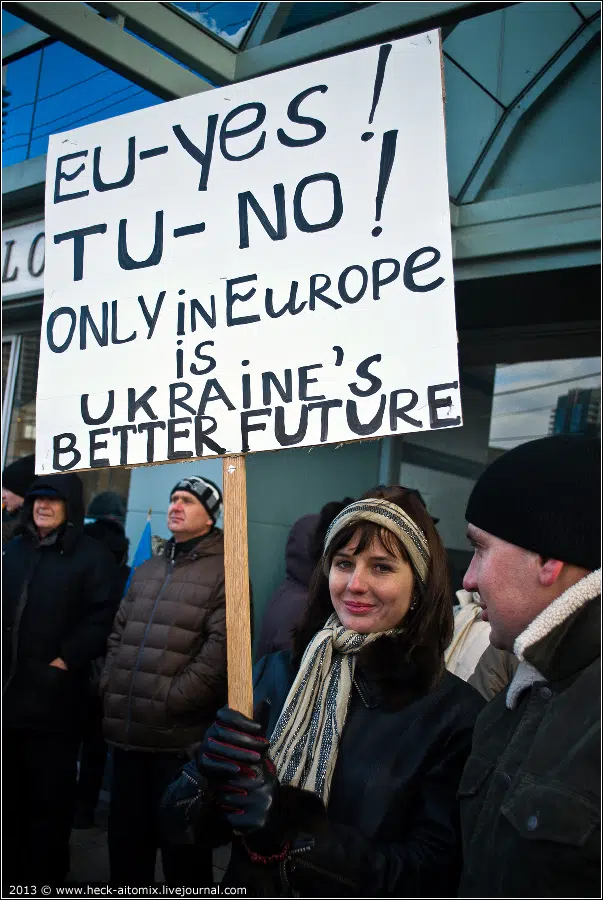 EU-yes!
TU-NO!
ONLY iN EUROPE
iS
UKRAiNE'S
BETTER FUTURE
LO
2013 © www.heck-aitomix.livejournal.com